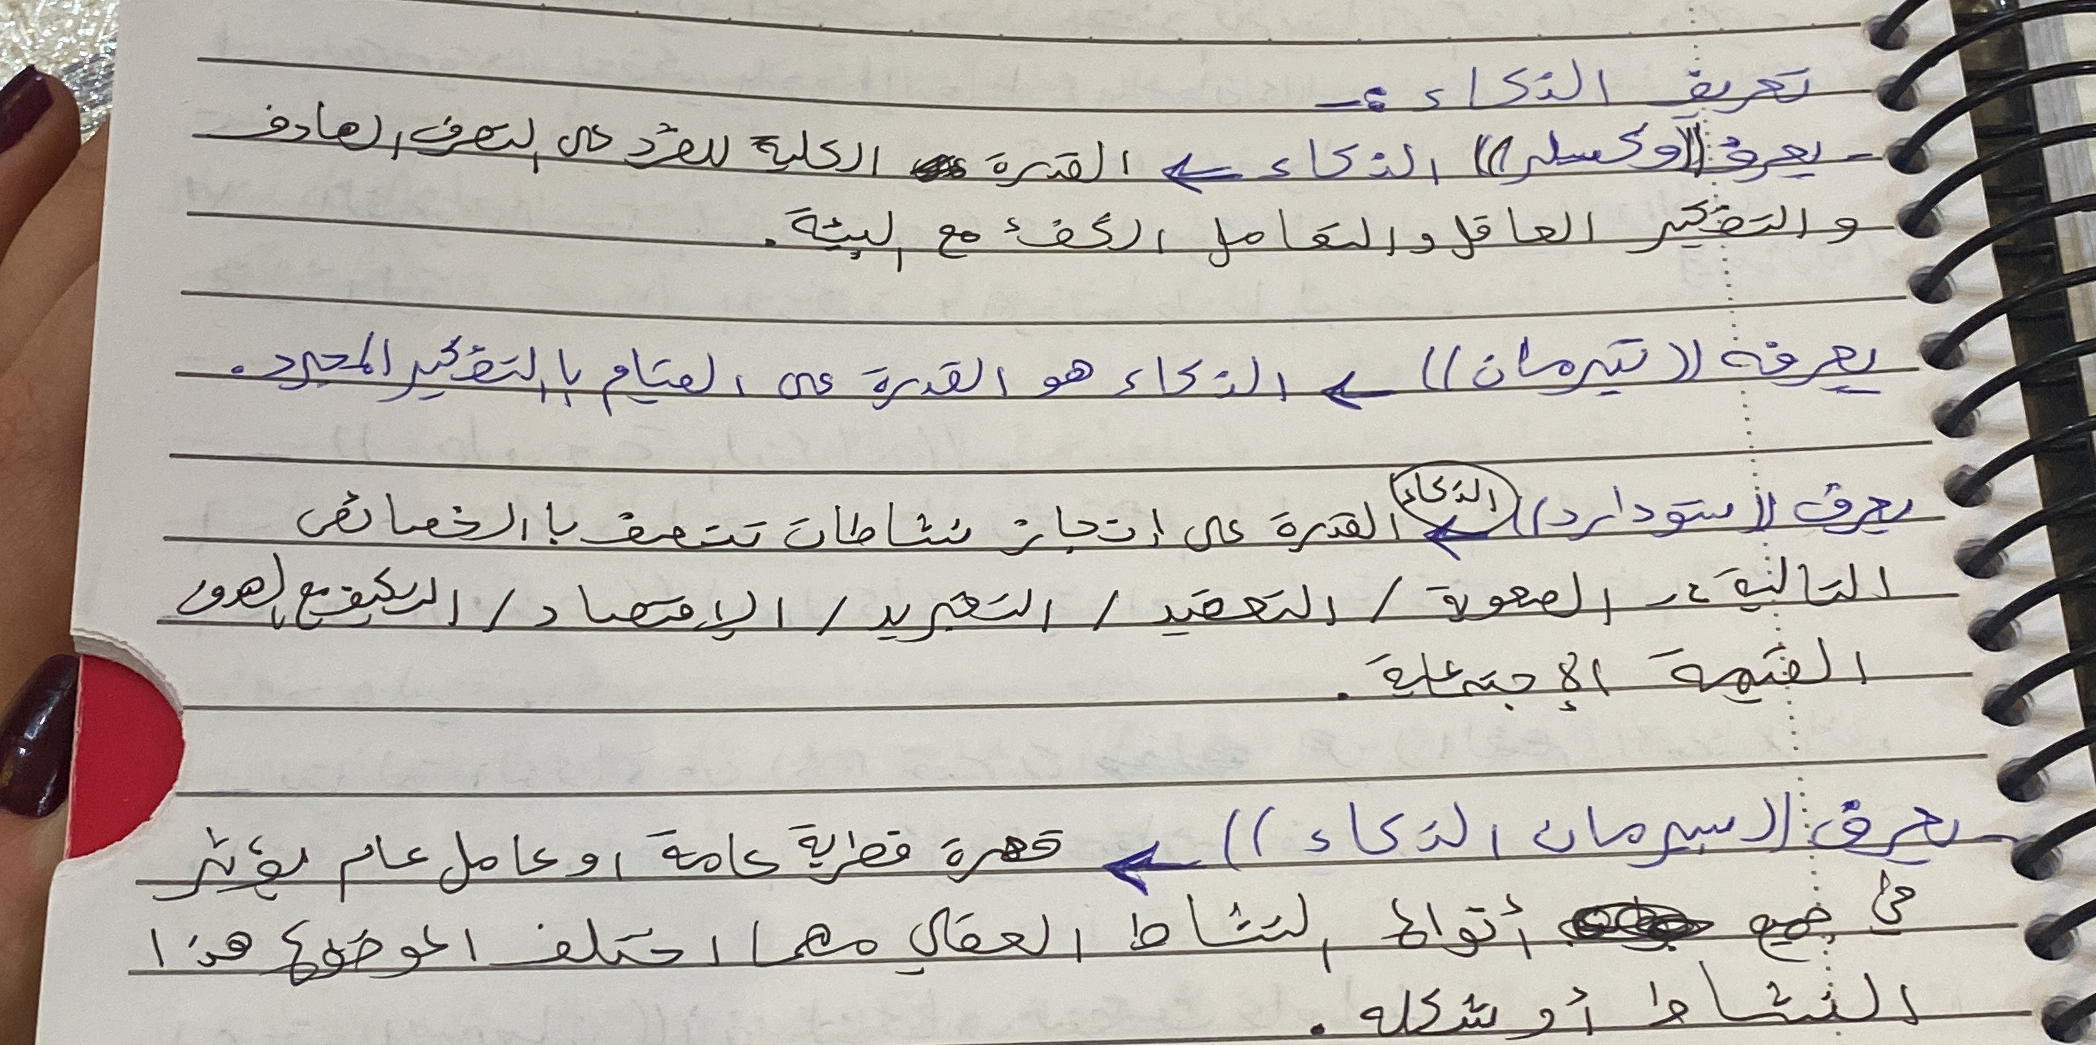 تعريف الذكاء :-
- يعرف ((وكسلر)) الذكاء ← القدرة الكلية للفرد على التصرف الهادف
والتفكير العاقل والتعامل الكفئ مع البيئة.
يعرفه ((تيرمان)) ← الذكاء هو القدرة على القيام باالتفكير المجرد.
يعرف ((ستودارد)) الذكاء ← القدرة على انجاز نشاطات تتصف باالخصائص
التالية :- الصعوبة / التعقيد / التجريد / الإقتصاد / التكيف مع الهدف
القيمة الإجتماعية.
- يعرف ((سبيرمان الذكاء)) ← قدرة فطرية عامة او عامل عام يؤثر
في جميع أنواع النشاط العقلي مهما اختلف الموضوع هذا
النشاط أو شكله.